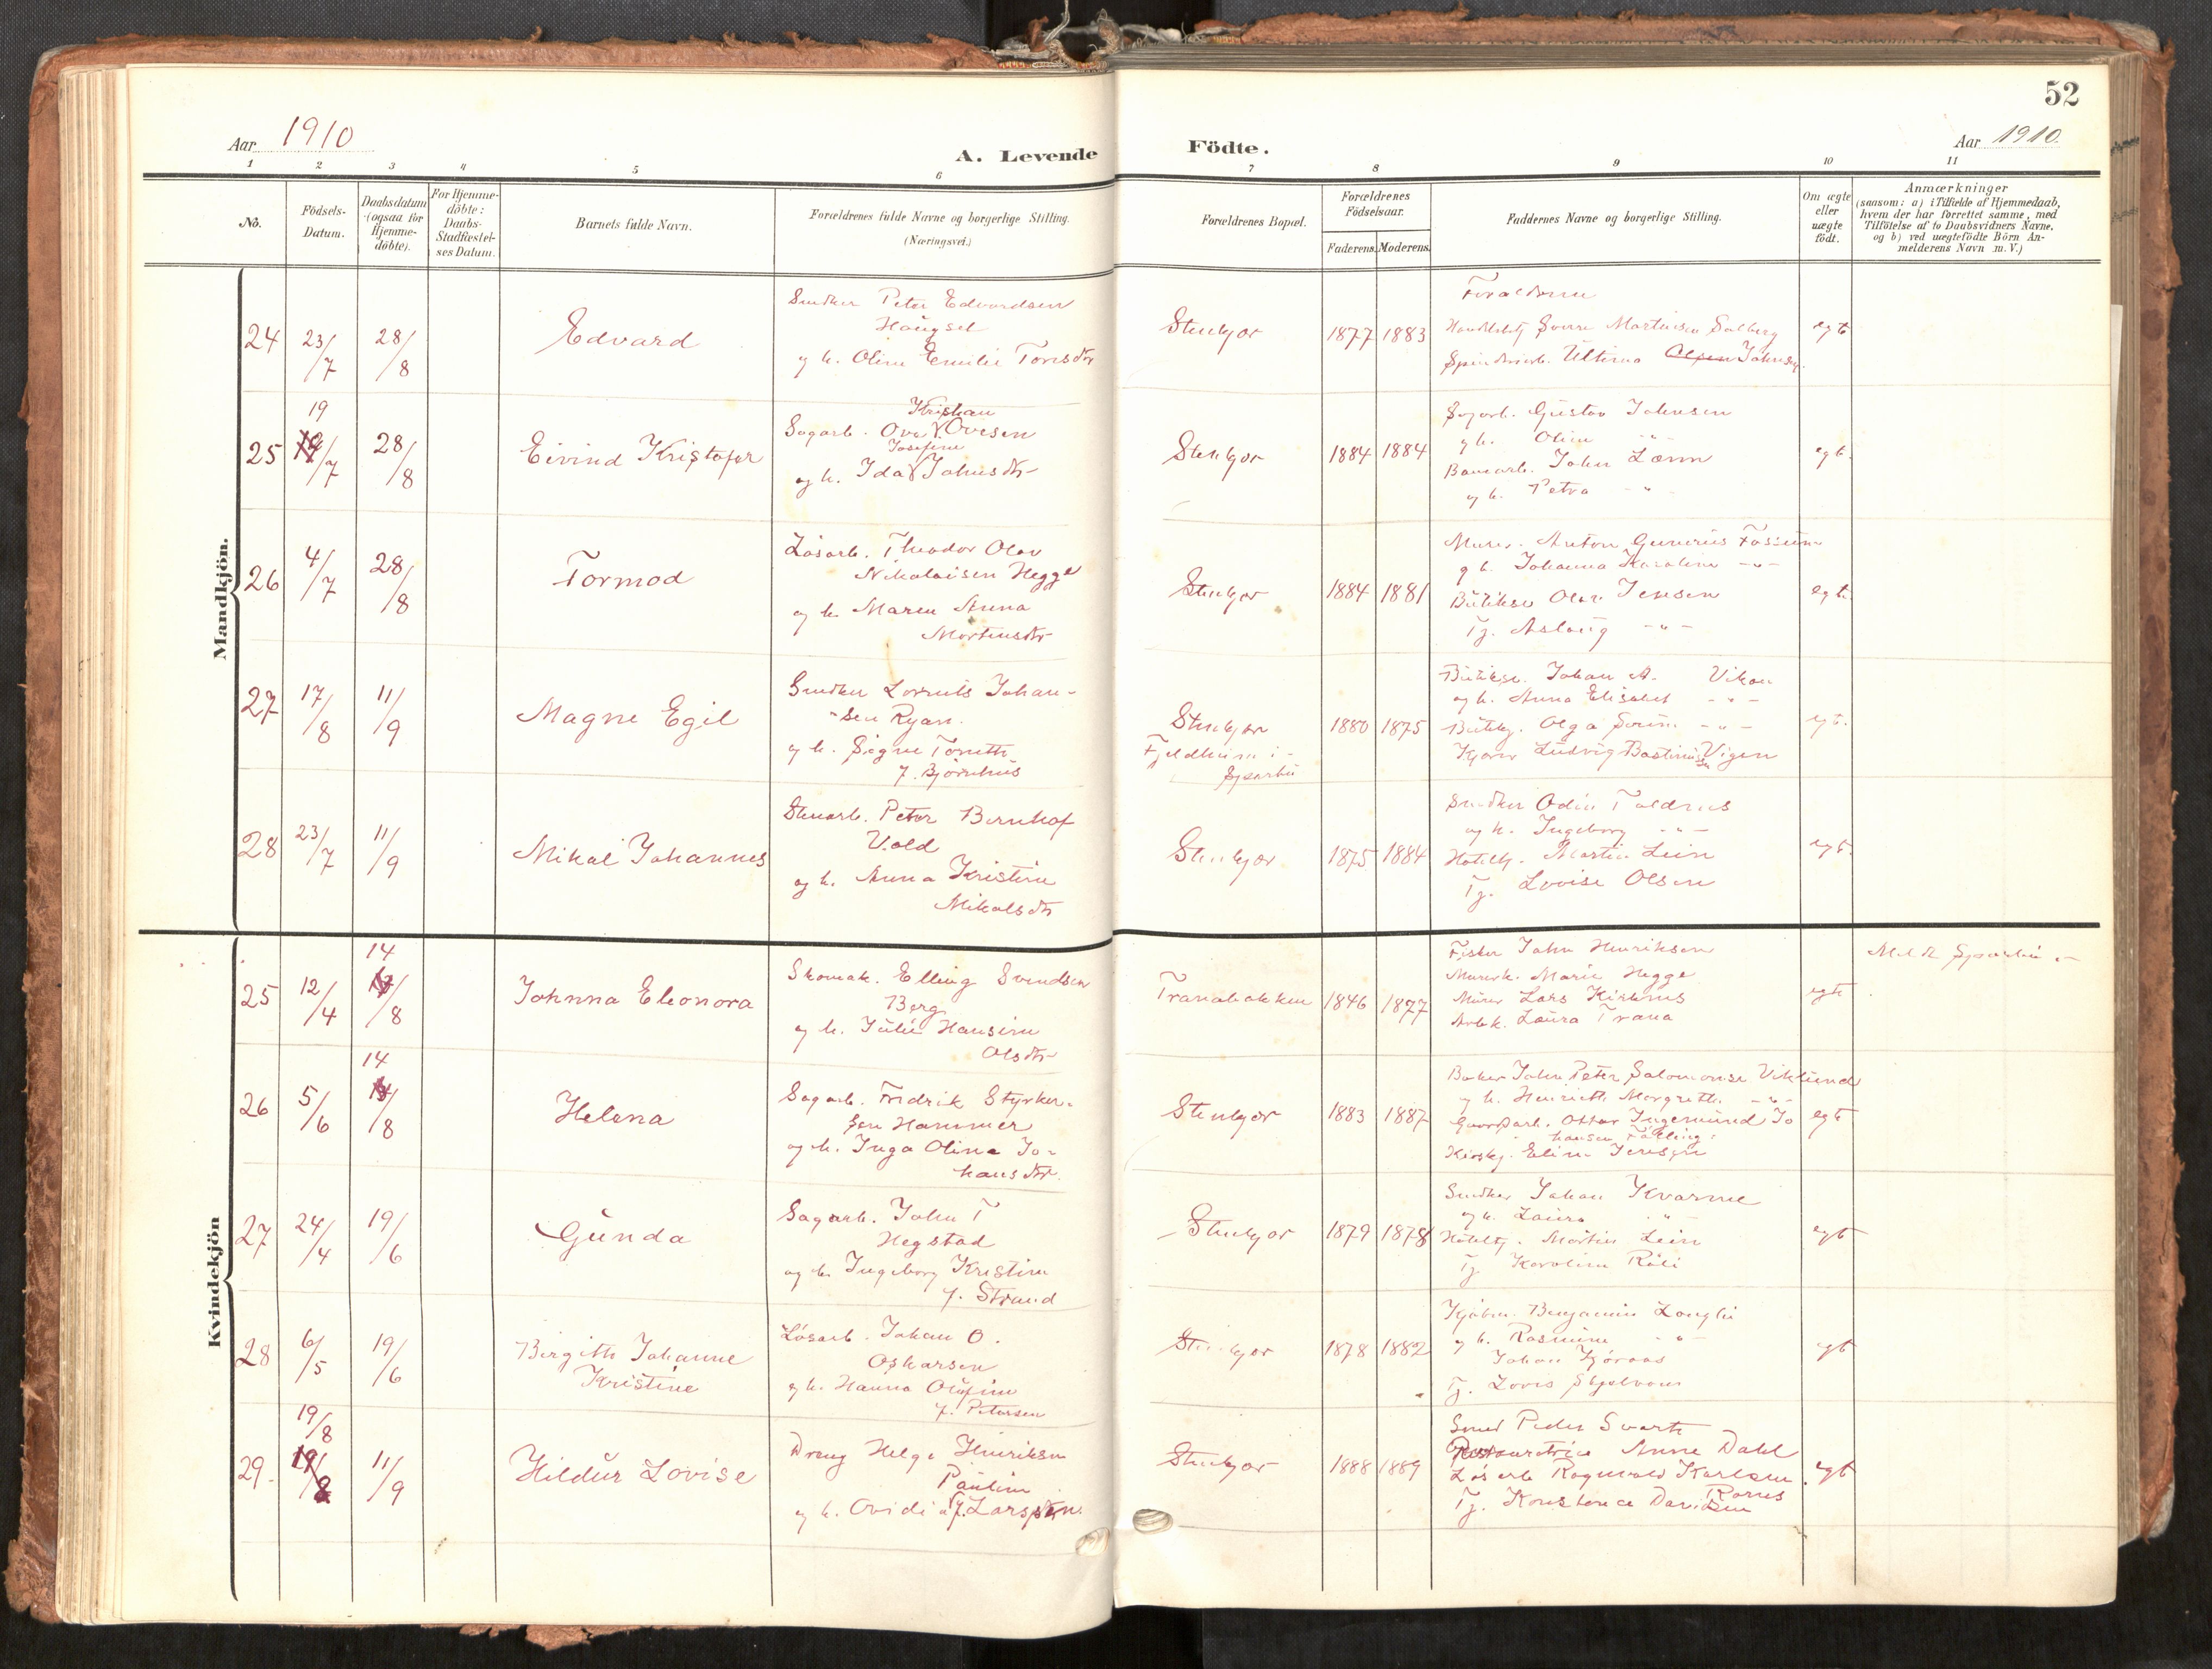 52
Aar 1910
A. Levende Födte.
Aar 1910.
1 2 3 4 5 6 7 8 9 10 11
No.
Födsels-Datum.
Daabsdatum (ogsaa for Hjemme-döbte).
For Hjemme-döbte: Daabs-Stadfæstel-ses Datum.
Barnets fulde Navn.
Forældrenes fulde Navne og borgerlige Stilling.
(Næringsvei.)
Forældrenes Bopæl.
Forældrenes Födselsaar.
Faderens. Moderens.
Faddernes Navne og borgerlige Stilling.
Om ægte eller uægte födt.
Anmærkninger
(saasom: a) i Tilfælde af Hjemmedaab,
hvem der har forrettet samme, med
Tilföielse af to Daabsvidners Navne,
og b) ved uægtefödte Börn An-
melderens Navn m. V.)
Mandkjön.
24 23/7 28/8 Edvard
Snedker Peter Edvardsen
Haugset
og h. Oline Emilie Torisdtr
Stenkjær 1877 1883
Forældrene
Sverre Martinsen Salberg
Ultima Olsen Johnsen
egt
25 19/7 28/8 Eivind Kristofer
Kristian
Sagarb. Ove Ovesen
Josefine
og h. Ida Johnsdtr
Stenkjær 1884 1884
Sagarb. Gustav Johnsen
og h. Oline -"-
Banearb. John Lænn
og h. Petra -"-
egt.
26 4/7 28/8 Tormod
Løsarb. Theodor Olav
Nikolaisen Hegge
og h. Maren Anna
Mortensdtr
Stenkjær 1884 1881
Murer Anton Gunerius Fossum
og h. Johanna Karoline -"-
Olav Jensen
Tj. Aslaug -"-
egt.
27 17/8 11/9 Magne Egil
Snedker Lorents Johan-
sen Ryan.
og h. Signe Toruth
f. Bjørnhus
Stenkjær
Fjeldheim i
Sparbu
1880 1875
Johan A. Vikan
og h. Anna Elisabet -"-
Olga -"-
Ludvig Vigen
egt.
28 23/7 11/9 Mikal Johannes
Stenarb. Peter Bernhof
Vold
og h. Anna Kristine
Mikalsdtr
Stenkjær 1875 1884
Snedker Odin Foldnes
og h. Ingeborg -"-
Martin Lein
Tj. Lovise Olsen
egt.
Kvindekjön
25 12/4 14/8 Johnna Eleonora
Skomak. Elling Svendsen
Berg
og h. Julie Hansine
Olsdtr
Tranabakken 1846 1877
Fisker John Henriksen
Murerk. Marie Hegge
Murer Lars
Arbk. Laura Trana
egt
26 5/6 14/8 Helena
Sagarb. Fredrik Styrker-
sen Hammer
og h. Inga Olina Jo-
hansdtr.
Stenkjær 1883 1887
Baker John Peter Salomonsen Viklund
og h. Margrethe -"-
Gaardsarb. Ottar Ingemund Jo
hansen
Eline Jensen
egt
27 24/4 19/6 Gunda
Sagarb. John T
Hegstad
og h. Ingeborg Kristine
f. Strand
Stenkjær 1879 1878
Snedker Johan Kvarme
og h. Laura -"-
Martin Lein
Tj. Karoline
egt
28 6/5 19/6 Birgith Johanne
Kristine
Løsarb. Johan O.
Oskarsen
og h. Hanna Olufine
f. Petersen
Stenkjær 1878 1882
Benjamin Langli
og h. Rasmine -"-
Johan
Tj. Lovis
egt
29. 19/8 11/9 Hildur Lovise
Dreng Helge Henriksen
Pauline
og h. Ovidia f. Larssen.
Stenkjær 1888 1889
Smed Peder Svarte
Anne Dahl
Løsarb Ragnvald Karlsen
Tj. Konstance Davidsen
egt